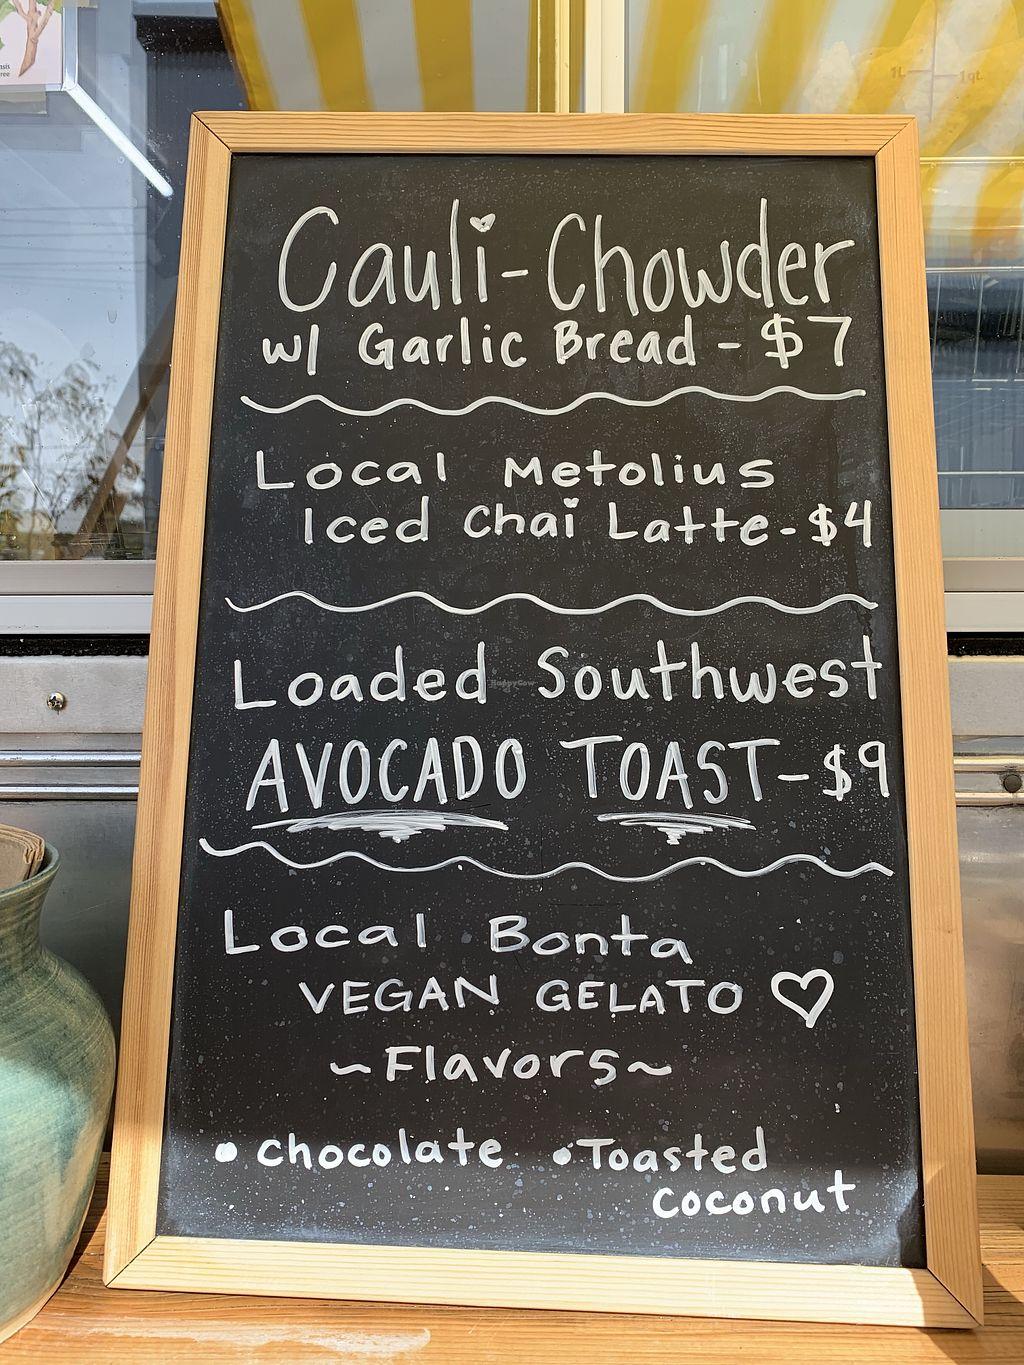 Cauli-Chowder
w/ Garlic Bread - $7
Local Metolius
Iced Chai Latte - $4
Loaded Southwest
AVOCADO TOAST - $9
Local Bonta
VEGAN GELATO ♡
~Flavors~
• chocolate • Toasted
coconut
1L 1qt.
HappyCow